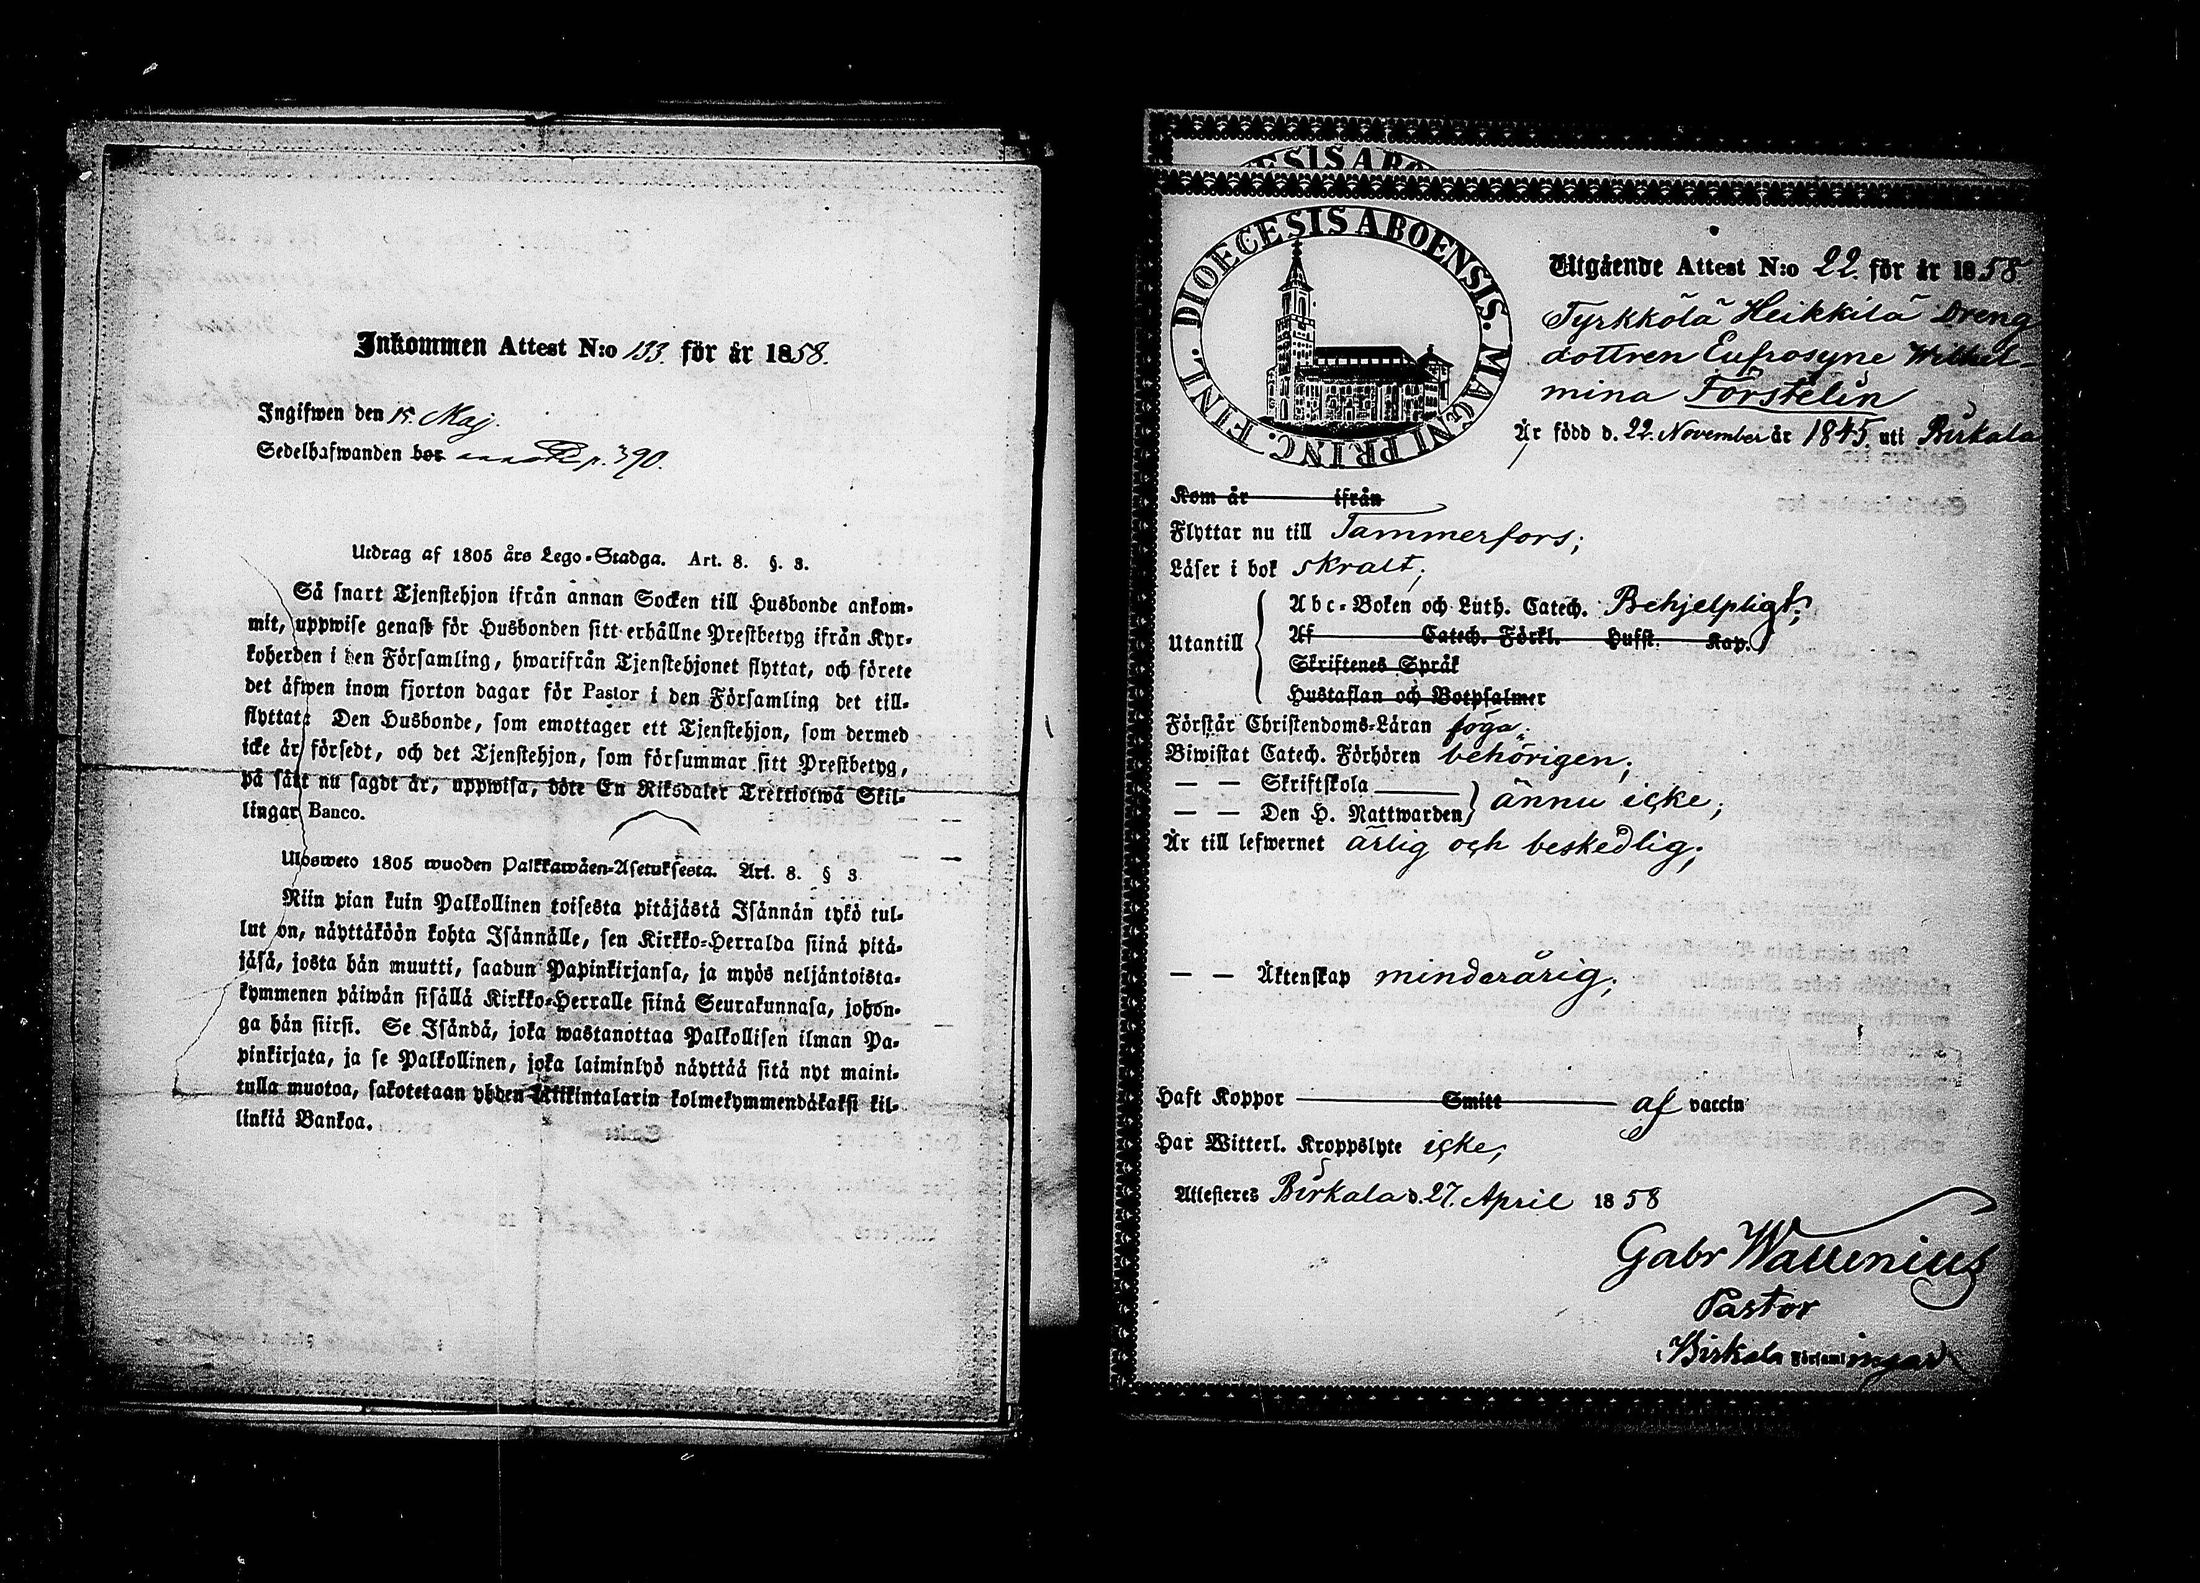 Inkommen Attest N:o 133. för år 1858.
Ingifwen den 15. Maj.
Sedelhafwanden bor p. 390.
Utdrag af 1805 års Lego-Stadga. Art. 8. §. 3.
Så snart Tjenstehjon ifrån annan Socken till Husbonde ankom-
mit, uppwise genast för Husbonden sitt erhållne Prestbetyg ifrån Kyr-
koherden i den Församling, hwarifrån Tjenstehjonet flyttat, och förete
det äfwen inom fjorton dagar för Pastor i den Församling det till-
flyttat: Den Husbonde, som emottager ett Tjenstehjon, som dermed
icke är försedt, och det Tjenstehjon, som försummar sitt Prestbetyg,
på sätt nu sagdt är, uppwisa, böte En Riksdaler Trettiotwå Skil-
lingar Banco.
Ulosweto 1805 wuoden Palkkawäen-Asetuksesta. Art. 8. § 3
Niin pian kuin Palkollinen toisesta pitäjästä Isännän tykö tul-
lut on, näyttäköön kohta Isännälle, sen Kirkko-Herralda siinä pitä-
jäsä, josta hän muutti, saadun Papinkirjansa, ja myös neljäntoista-
kymmenen päiwän sisällä Kirkko-Herralle siinä Seurakunnasa, johon-
ga hän siirsi. Se Isändä, joka wastanottaa Palkollisen ilman Pa-
pinkirjata, ja se Palkollinen, joka laiminlyö näyttää sitä nyt maini-
tulla muotoa, sakotetaan yhden Riikintalarin kolmekymmendäkaksi kil-
linkiä Bankoa.
ESIS ABO
DIOECESIS ABOENSIS. MAGNI PRINC. FINL.
Utgående Attest N:o 22. för år 1858
Tyrkkölä Heikkilä Dreng
dottren Eufrosyne Wilhel-
mina Forstelin
Är född d. 22. November år 1845. uti Birkala
Kom år ifrån
Flyttar nu till Tammerfors;
Läser i bok skralt;
Utantill
Abc-Boken och Luth. Catech. Behjelpligt;
Af Catech. Förkl. Hufst. Kap.
Skriftenes Språk
Hustaflan och Botpsalmer
Förstår Christendoms-Läran föga;
Biwistat Catech. Förhören behörigen;
— — Skriftskola
— — Den H. Nattwarden ännu icke;
Är till lefwernet ärlig och beskedlig;
— — Äktenskap minderårig;
Haft Koppor Smitt af vaccin
Har Witterl. Kroppslyte icke;
Attesteres Birkala d. 27. April 1858
Gabr Wallenius
Pastor
i Birkala Församlingar